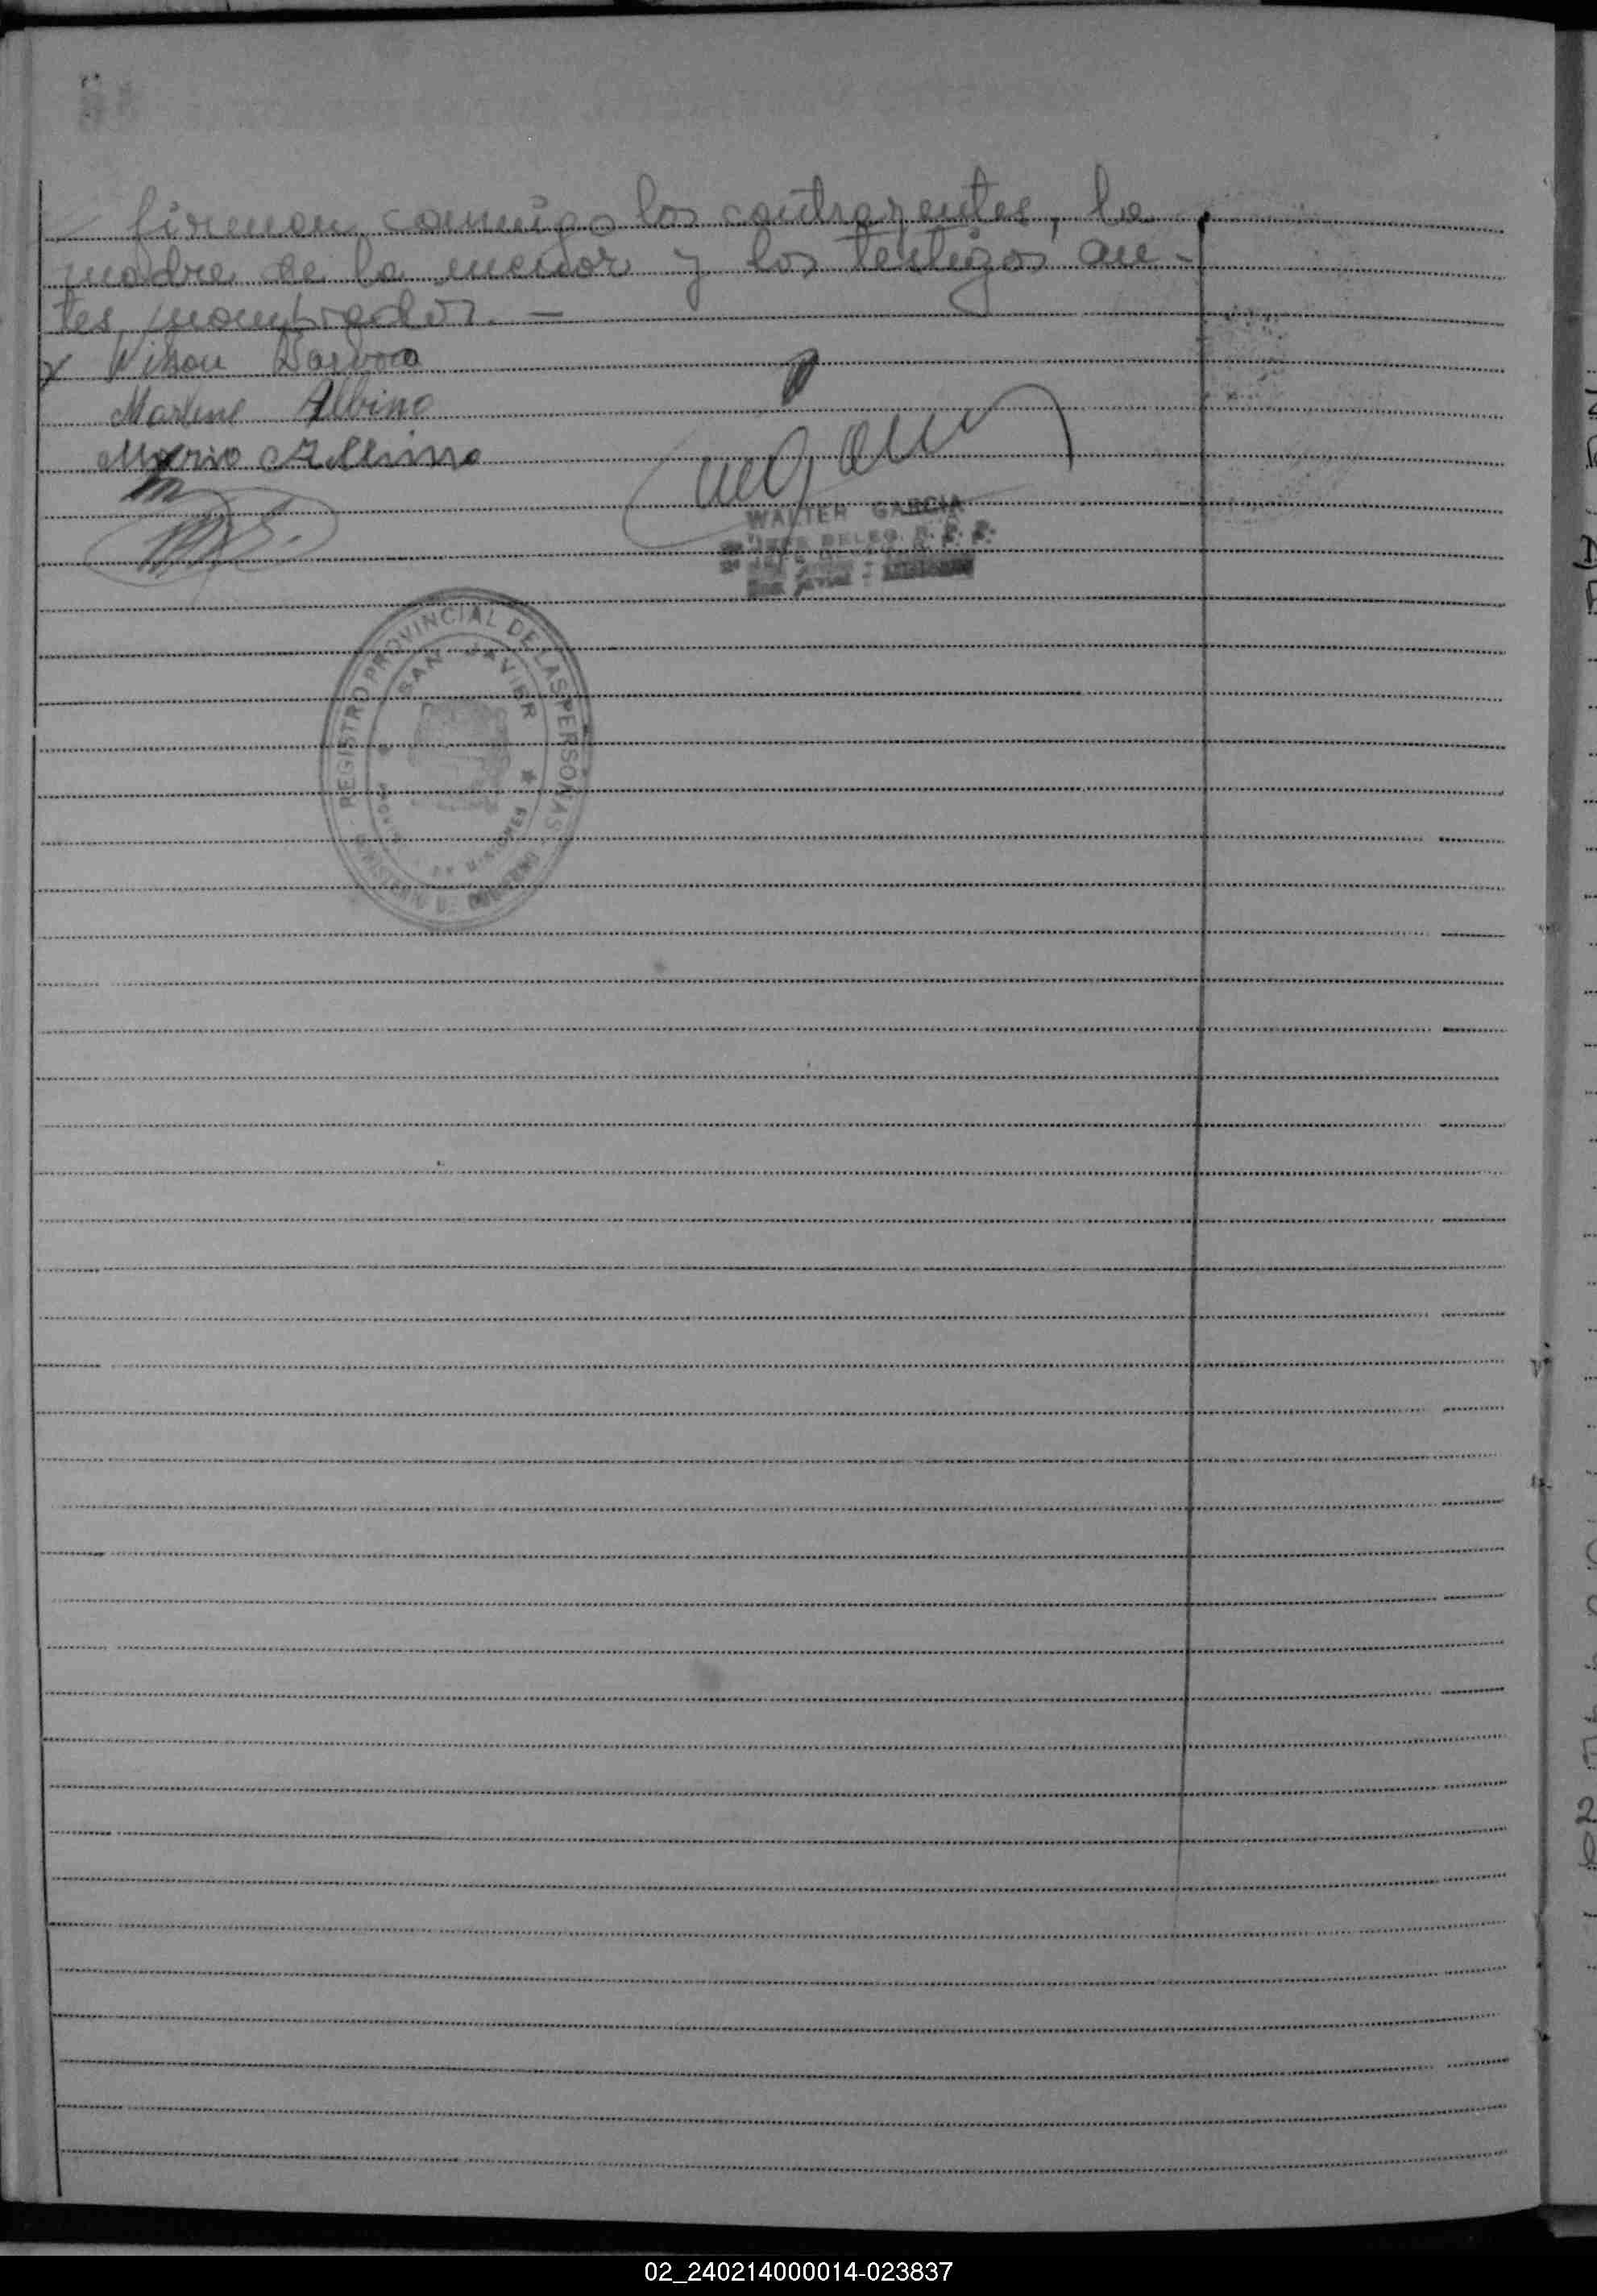 firman conmigo los contrayentes, la
madre de la menor y los testigos an-
tes nombrados. —
x Nilson Barboza
Marlene Albino
Mario Albino
WALTER GARCIA
JEFE DELEG. R. P. P.
San Javier - Misiones
REGISTRO PROVINCIAL DE LAS PERSONAS
SAN JAVIER
MISIONES
02_240214000014-023837